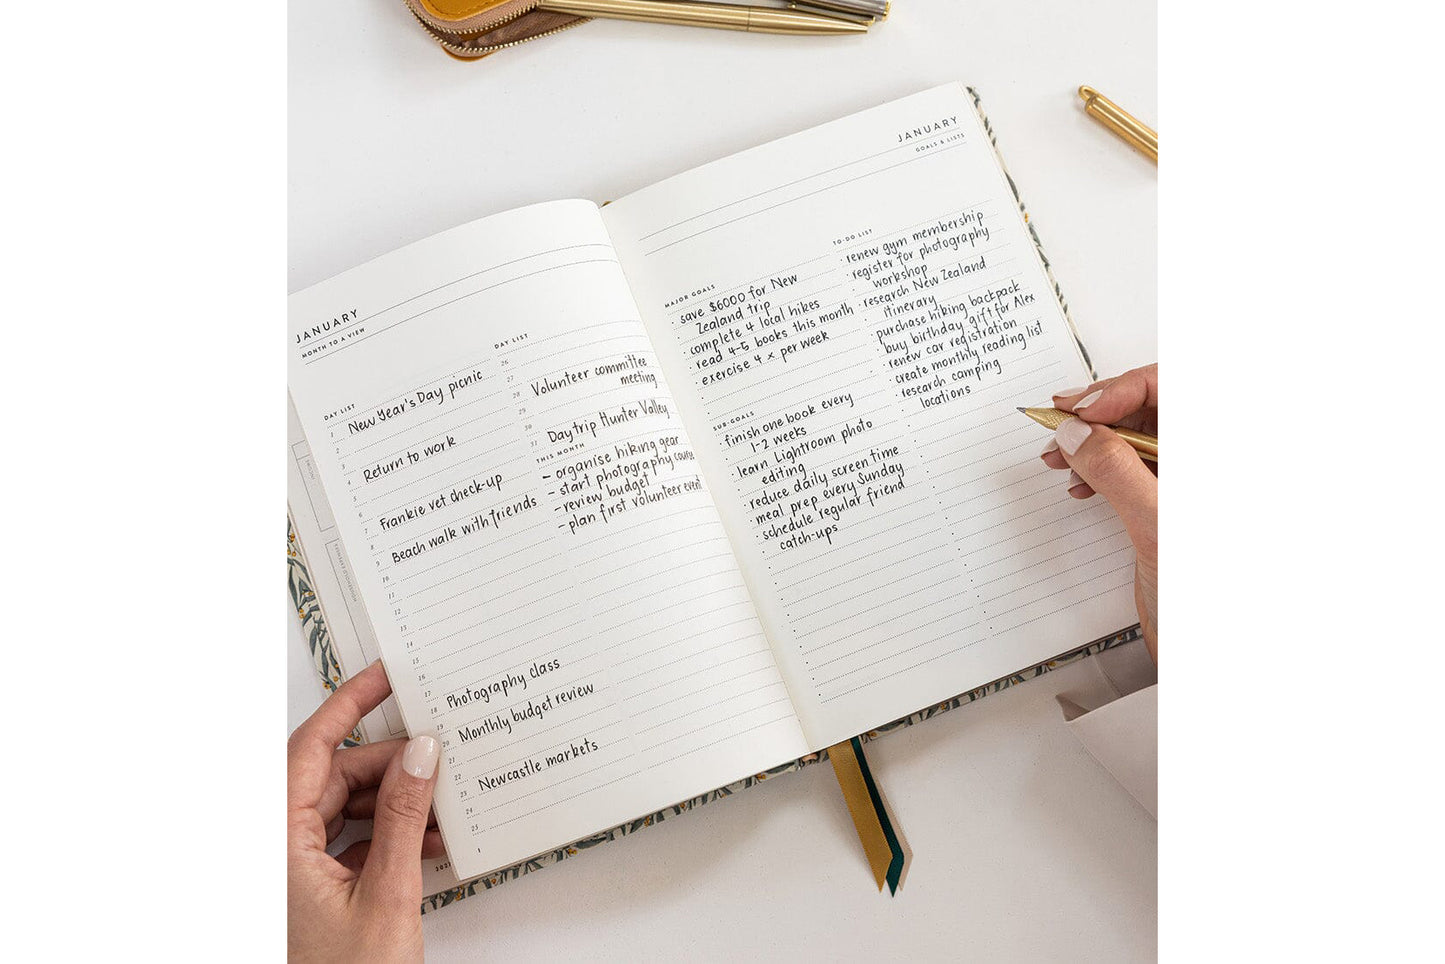 JANUARY
MONTH TO A VIEW
DAY LIST
1 New Year's Day picnic
2
3
4 Return to work
5
6
7 Frankie vet check-up
8
9 Beach walk with friends
10
11
12
13
14
15
16
17
18 Photography class
19
20 Monthly budget review
21
22
23 Newcastle markets
24
25
1
DAY LIST
26
27
28 Volunteer committee
meeting
29
30
31 Daytrip Hunter Valley
THIS MONTH
- organise hiking gear
- start photography course
- review budget
- plan first volunteer event
JANUARY
GOALS & LISTS
MAJOR GOALS
· save $6000 for New
Zealand trip
· complete 4 local hikes
· read 4-5 books this month
· exercise 4 x per week
SUB-GOALS
· finish one book every
1-2 weeks
· learn Lightroom photo
editing
· reduce daily screen time
· meal prep every Sunday
· schedule regular friend
catch-ups
TO-DO LIST
· renew gym membership
· register for photography
workshop
· research New Zealand
itinerary
· purchase hiking backpack
· buy birthday gift for Alex
· renew car registration
· create monthly reading list
· research camping
locations